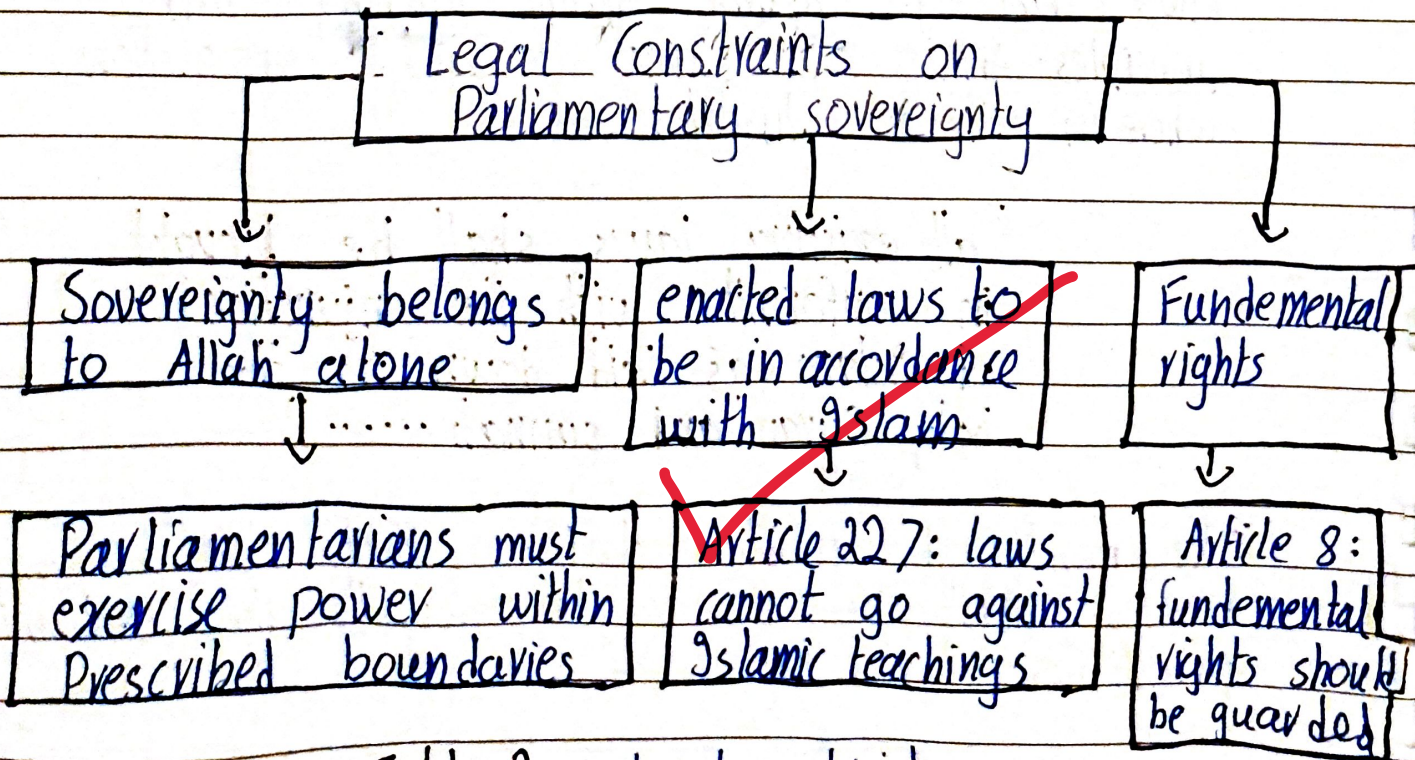 Legal Constraints on
Parliamentary sovereignty
Sovereignty belongs
to Allah alone
enacted laws to
be in accordance
with Islam
Fundemental
rights
Parliamentarians must
exercise power within
Prescribed boundaries
Article 227: laws
cannot go against
Islamic teachings
Article 8:
fundemental
rights should
be guarded